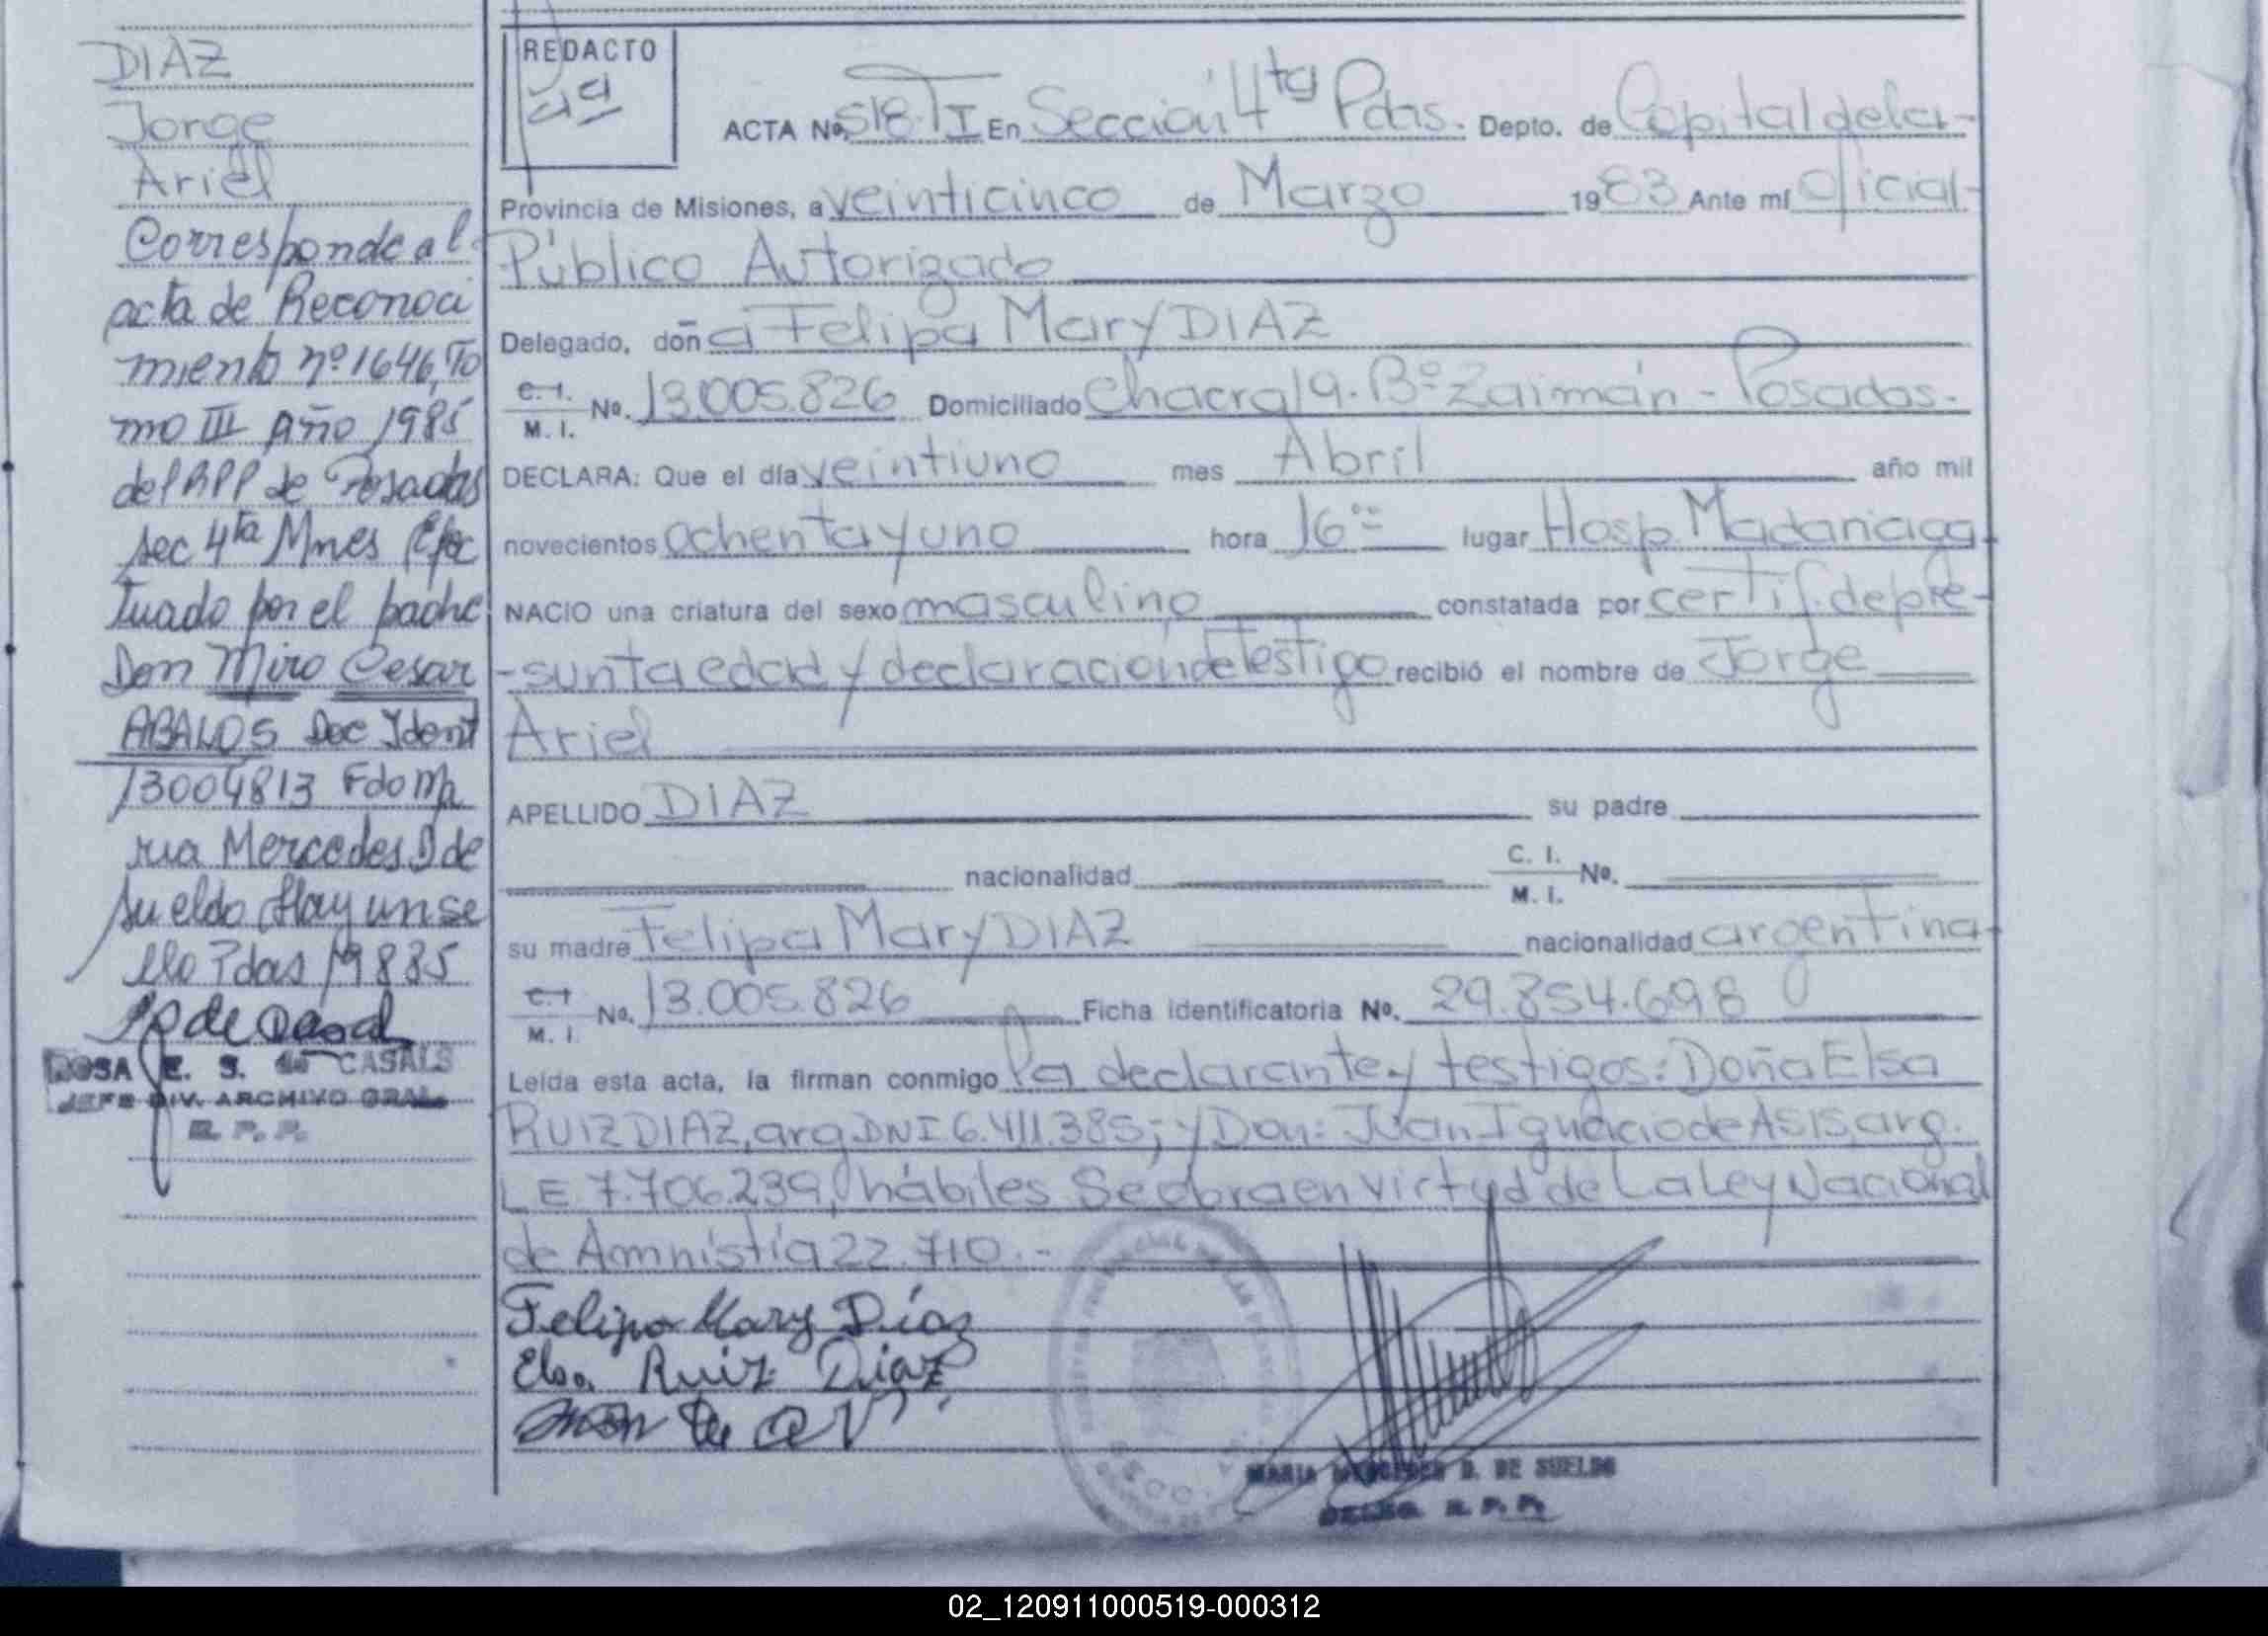 DIAZ
Jorge
Ariel
Corresponde al
acta de Reconoci
miento nº 1646, To
mo III Año 1985
del RPP de Posadas
sec 4ta Mnes Efec
tuado por el padre
Don Miro Cesar
ABALOS Doc Ident
13004813 Fdo Ma
ria Mercedes D de
Sueldo Hay un se
llo Pdas
ROSA E. S. de CASALS
JEFE DIV. ARCHIVO GRAL.
R. P. P.
REDACTO
ACTA Nº 518. TI En Sección 4ta Pdas. Depto. de Capital de la-
Provincia de Misiones, a veinticinco de Marzo 1983 Ante mí Oficial-
Público Autorizado
Delegado, doña Felipa Mary DIAZ
C. I.
M. I. Nº. 13.005.826 Domiciliado Chacra 19. Bº Zaimán - Posadas.
DECLARA: Que el día veintiuno mes Abril año mil
novecientos ochenta y uno hora 16 lugar Hosp. Madariaga
NACIO una criatura del sexo masculino constatada por certif. de pre-
-sunta edad y declaración de Testigo recibió el nombre de Jorge
Ariel
APELLIDO DIAZ su padre
nacionalidad C. I.
M. I. Nº.
su madre Felipa Mary DIAZ nacionalidad argentina
C. I
M. I. Nº. 13.005.826 Ficha identificatoria Nº. 29.854.698
Leída esta acta, la firman conmigo la declarante y testigos: Doña Elsa
RUIZ DIAZ, arg DNI 6.411.385; y Don: Juan Ignacio de ASIS arg.
LE 7.706.239, hábiles Se labra en virtud de La Ley Nacional
de Amnistía 22.710.-
Felipa Mary Díaz
Elsa Ruiz Diaz
MARIA MERCEDES D. DE SUELDO
DELEG. R. P. P.
02_120911000519-000312